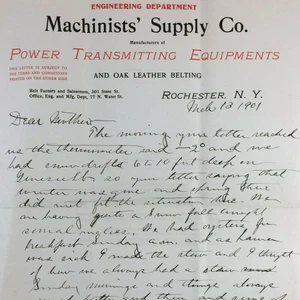 ENGINEERING DEPARTMENT
Machinists' Supply Co.
Manufacturers of
POWER TRANSMITTING EQUIPMENTS
AND OAK LEATHER BELTING
THIS LETTER IS SUBJECT TO
THE TERMS AND CONDITIONS
PRINTED ON THE OTHER SIDE
ROCHESTER, N. Y.
Belt Factory and Salesroom, 301 State St.
Office, Eng. and Mfg. Dept., 77 N. Water St.
Mch 13 1901
Dear Mother
The morning your letter reached
us the thermometer said -2° and we
had snow drifts 6 to 10 ft deep on
so your letter saying that
winter was gone and spring there
did not fit the situation here. We
are having quite a snow fall again
We had oysters for
breakfast Sunday a.m. and as
was sick I made the stew and I thought
of how we always had a clam
Sunday mornings and things always